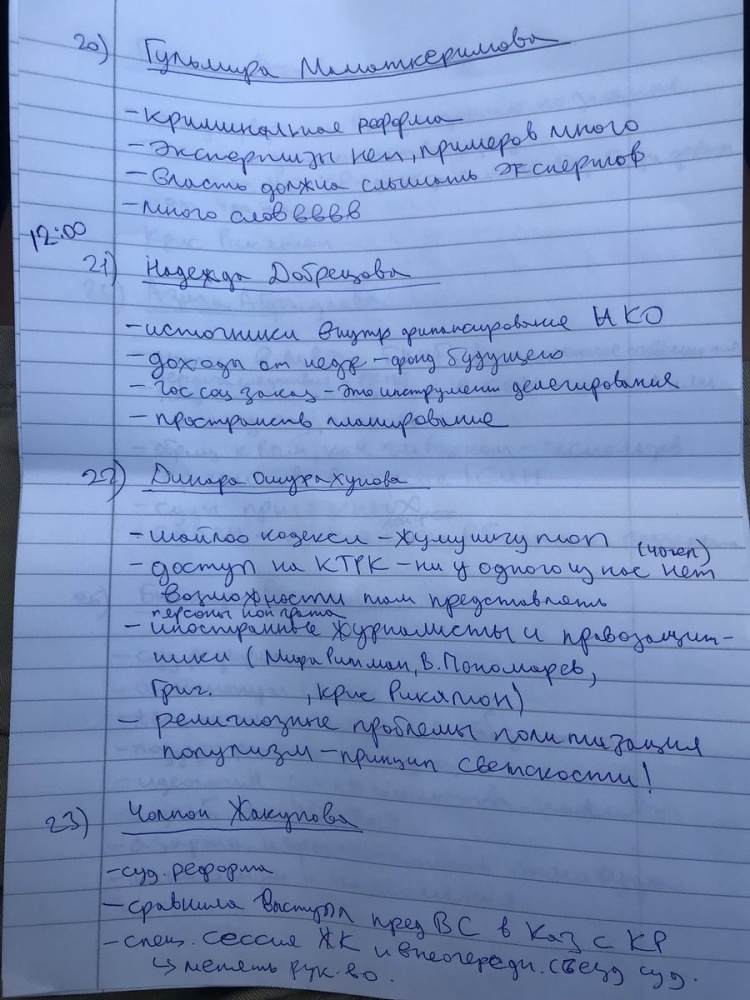 20) Гульмира Маматкеримова
- криминальная реформа
- Экспертизы нет, примеров много
- Власть должна слышать экспертов
- много слов вввв
12:00
21) Надежда Добрецова
- источники внутр финансирование НКО
- доходы от недр - фонд будущего
- Гос соц заказ - это инструмент делегирования
- пространств планирование
22) Динара Ошурахунова
- шайлоо кодекси - жумушчу топ
(чогел)
- доступ на КТРК - ни у одного из нас нет
возможности там представлять
персоны нон грата
- иностранные журналисты и правозащит-
ники (Мира Ритман, В. Пономарев,
Григ. , Крис Риклтон)
- религиозные проблемы политизация
популизм - принцип светскости!
23) Чолпон Жакупова
- суд. реформа
- сравнила выступл пред ВС в Каз с КР
- спец. сессия ЖК и внеочередн. съезд суд.
↳ менять рук-во.